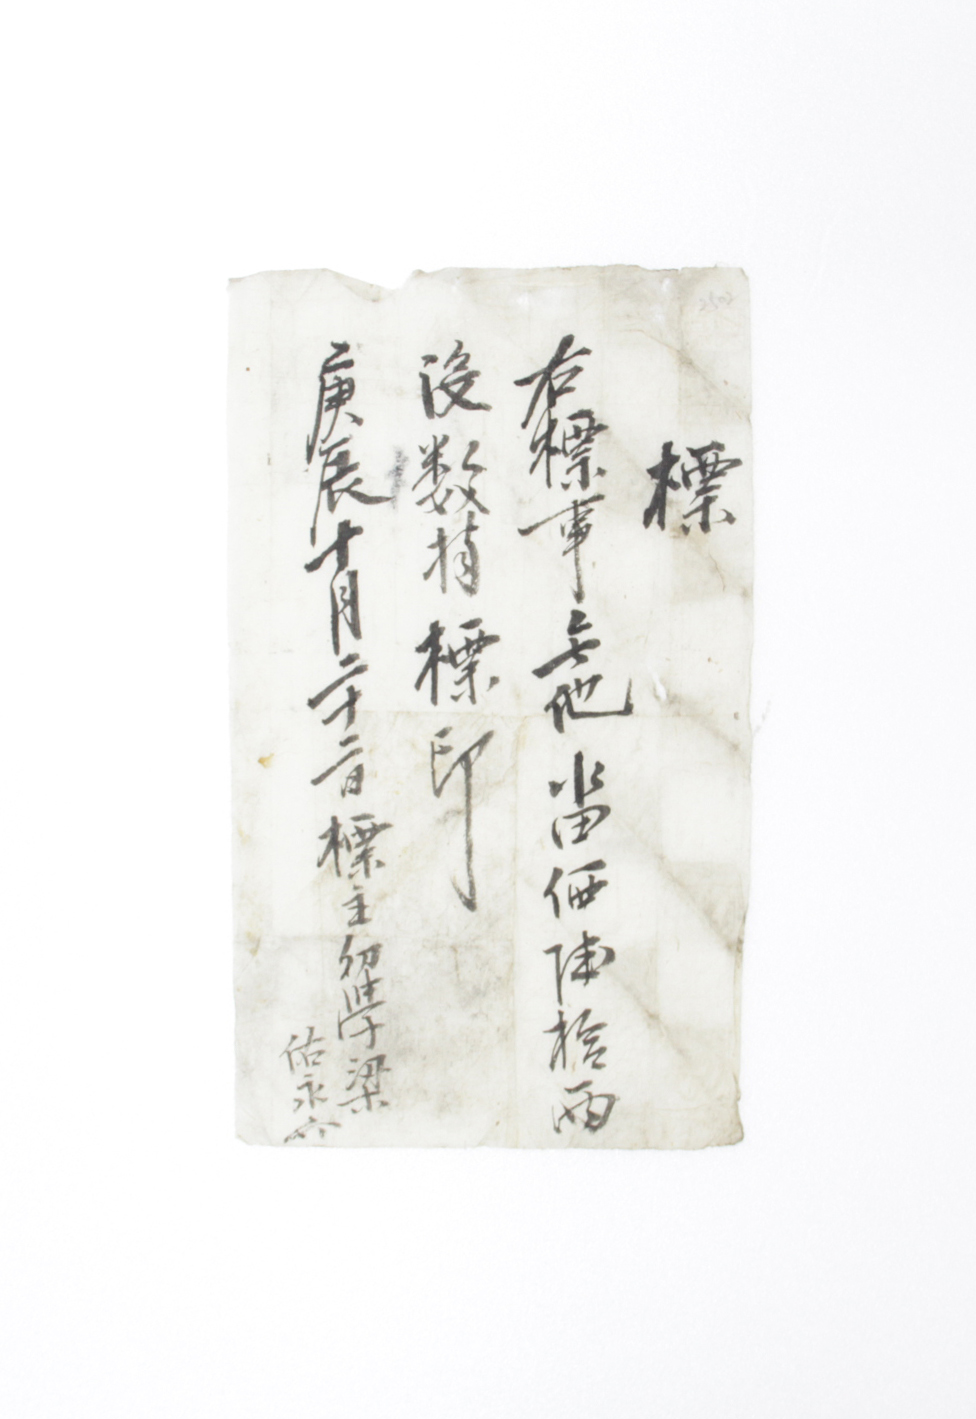 標
右標事無他畓価陸拾兩
沒数捧標印
庚辰十月二十二日標主幼學梁
佑永